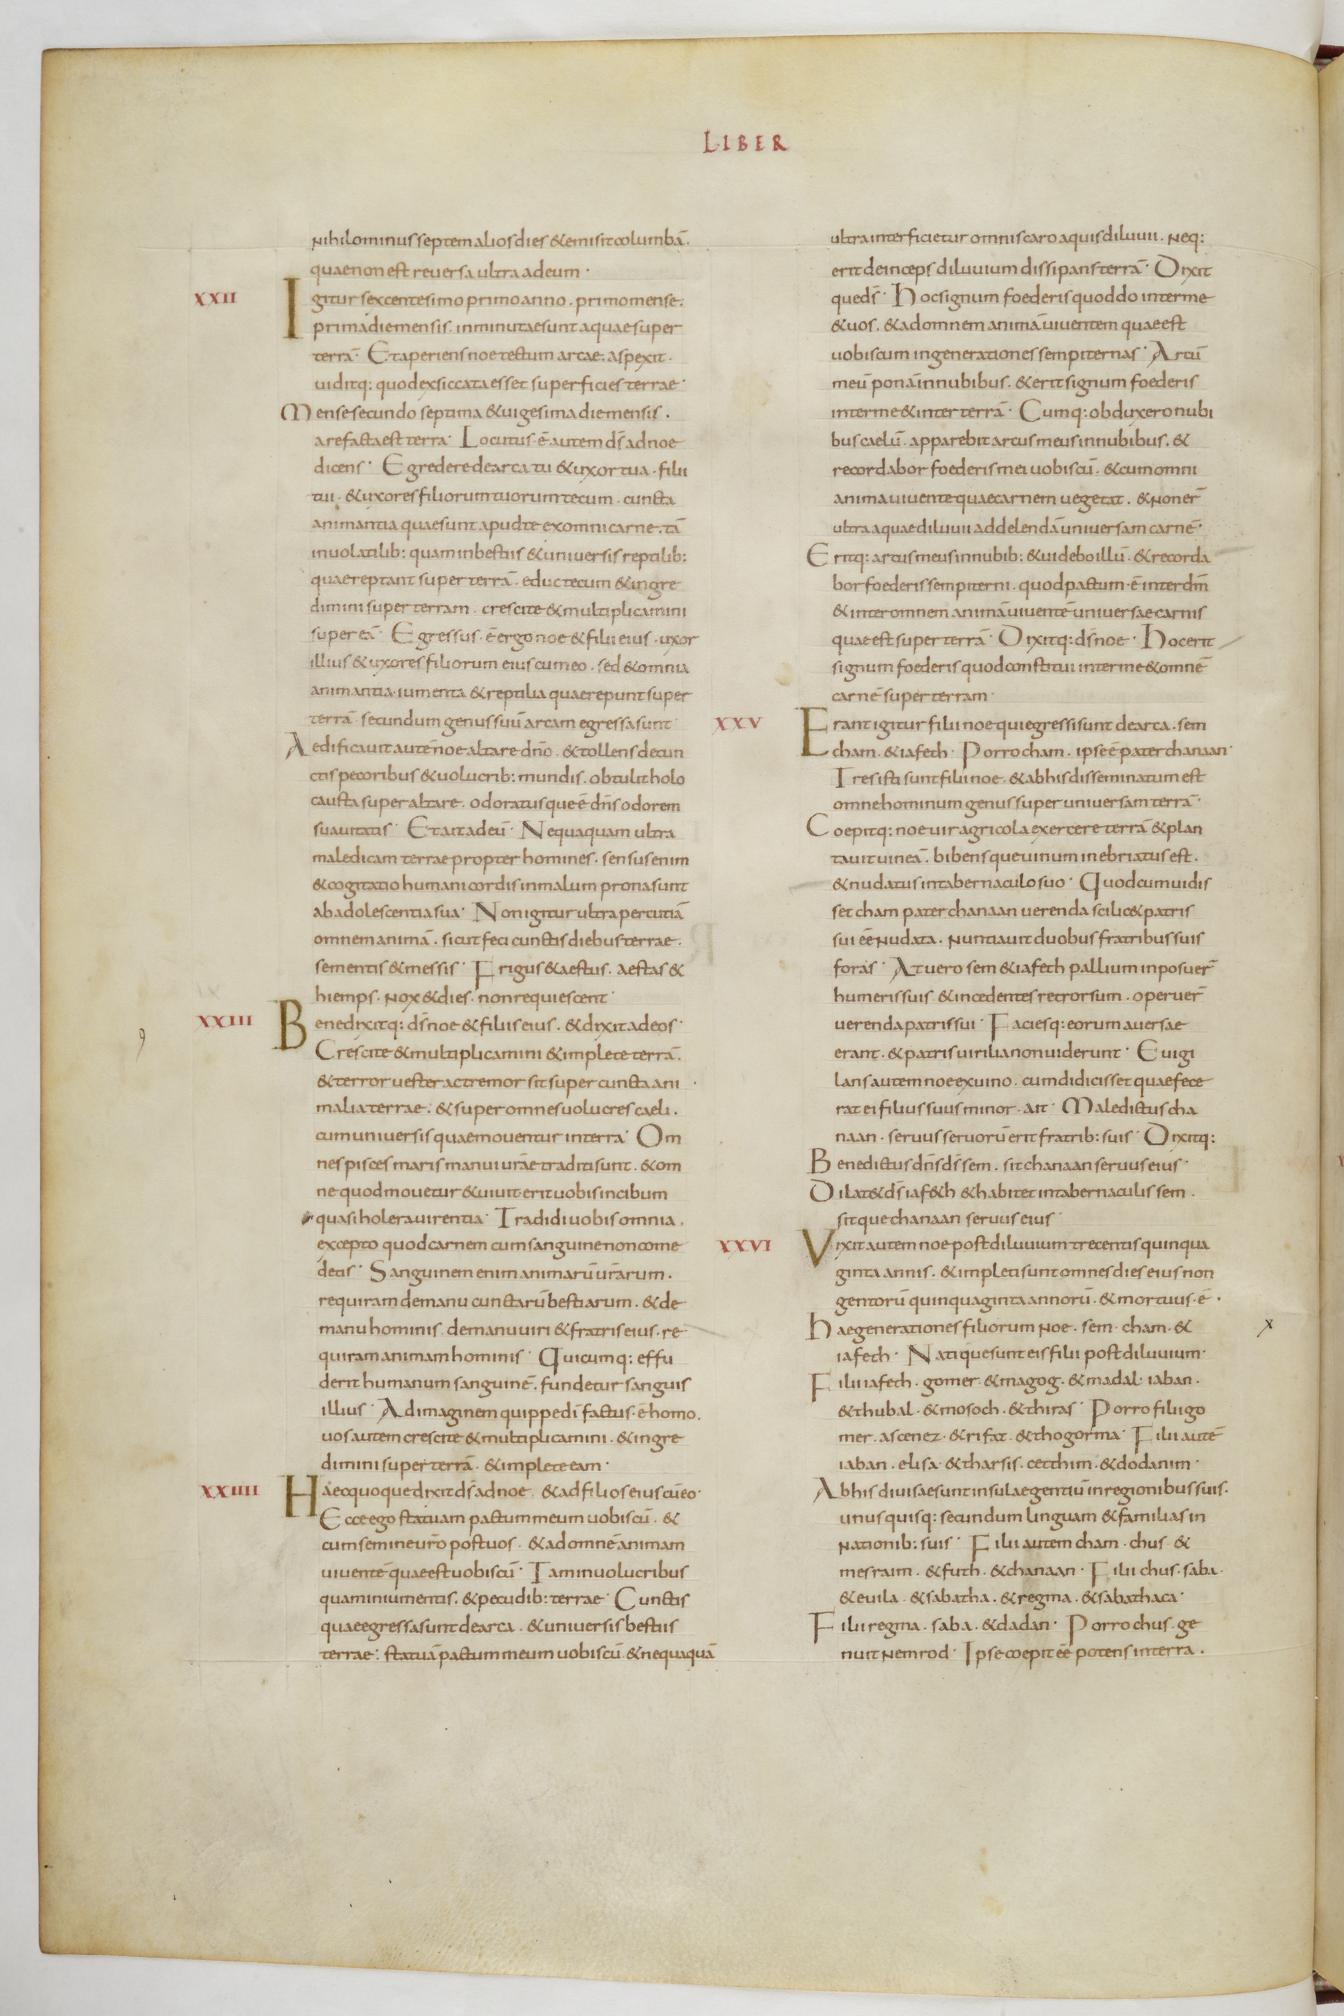 LIBER
nihilominus septem alios dies & emisit columbā.
quae non est reversa ultra ad eum.
XXII
Igitur sexcentesimo primo anno. primo mense.
prima die mensis. inminutae sunt aquae super
terrā. Et aperiens noe tectum arcae. aspexit.
uiditq: quod exsiccata esset superficies terrae.
Mense secundo septima & uigesima die mensis.
arefacta est terra. Locutus ē autem dś ad noe
dicens. Egredere de arca tu & uxor tua. filii
tui. & uxores filiorum tuorum tecum. cuncta
animantia quae sunt apud te ex omni carne. tā
in uolatilib: quam in bestiis & uniuersis reptilib:
quae reptant super terrā. educ tecum & ingre
dimini super terram. crescite & multiplicamini
super eā. Egressus ē ergo noe & filii eius. uxor
illius & uxores filiorum eius cum eo. sed & omnia
animantia iumenta & reptilia quae repunt super
terrā secundum genus suū arcam egressa sunt
Aedificauit autē noe altare dño. & tollens de cun
ctis pecoribus & uolucrib: mundis. obtulit holo
causta super altare. odoratusque ē dñs odorem
suauitatis. Et ait ad eū. Nequaquam ultra
maledicam terrae propter homines. sensus enim
& cogitatio humani cordis in malum prona sunt
ab adolescentia sua. Non igitur ultra percutiā
omnem animā. sicut feci cunctis diebus terrae.
sementis & messis. Frigus & aestus. aestas &
hiemps. nox & dies. non requiescent.
XXIII
Benedixitq: dś noe & filiis eius. & dixit ad eos.
Crescite & multiplicamini & implete terrā.
& terror uester ac tremor sit super cuncta ani
malia terrae. & super omnes uolucres caeli.
cum uniuersis quae mouentur in terra. Om
nes pisces maris manui urāe traditi sunt. & om
ne quod mouetur & uiuit erit uobis in cibum
quasi holera uirentia. Tradidi uobis omnia.
excepto quod carnem cum sanguine non come
detis. Sanguinem enim animarū urārum.
requiram de manu cunctarū bestiarum. & de
manu hominis. de manu uiri & fratris eius. re
quiram animam hominis. Quicumq: effu
derit humanum sanguinē. fundetur sanguis
illius. Ad imaginem quippe dī factus ē homo.
uos autem crescite & multiplicamini. & ingre
dimini super terrā. & implete eam.
XXIIII
Haec quoque dixit dś ad noe. & ad filios eius cū eo.
Ecce ego statuam pactum meum uobiscū. &
cum semine urō post uos. & ad omnē animam
uiuentē quae est uobiscū. Tam in uolucribus
quam in iumentis. & pecudib: terrae. Cunctis
quae egressa sunt de arca. & uniuersis bestiis
terrae. statuā pactum meum uobiscū & nequaquā
ultra interficietur omnis caro aquis diluuii. neq:
erit deinceps diluuium dissipans terrā. Dixit
que dś. Hoc signum foederis quod do inter me
& uos. & ad omnem animā uiuentem quae est
uobiscum in generationes sempiternas. Arcū
meū ponā in nubibus. & erit signum foederis
inter me & inter terrā. Cumq: obduxero nubi
bus caelū. apparebit arcus meus in nubibus. &
recordabor foederis mei uobiscū. & cum omni
anima uiuente quae carnem uegetat. & non er̄
ultra aquae diluuii ad delendā uniuersam carnē.
Eritq: arcus meus in nubib: & uidebo illū. & recorda
bor foederis sempiterni. quod pactum ē inter dm̄
& inter omnem animā uiuentē uniuersae carnis
quae est super terrā. Dixitq: dś noe. Hoc erit
signum foederis quod constitui inter me & omnē
carnē super terram.
XXV
Erant igitur filii noe qui egressi sunt de arca. sem
cham. & iafeth. Porro cham. ipse ē pater chanaan.
Tres isti sunt filii noe. & ab his disseminatum est
omne hominum genus super uniuersam terrā.
Coepitq: noe uir agricola exercere terrā & plan
tauit uineā. bibensque uinum inebriatus est.
& nudatus in tabernaculo suo. Quod cum uidis
set cham pater chanaan uerenda scilic& patris
sui eē nudata. nuntiauit duobus fratribus suis
foras. At uero sem & iafeth pallium inposuer̄
humeris suis & incedentes retrorsum. operuer̄
uerenda patris sui. Faciesq: eorum auersae
erant. & patris uirilia non uiderunt. Euigi
lans autem noe ex uino. cum didicisset quae fece
rat ei filius suus minor. ait. Maledictus cha
naan. seruus seruorū erit fratrib: suis. Dixitq:
Benedictus dñs dś sem. sit chanaan seruus eius.
Dilat& dś iaf&h & habitet in tabernaculis sem.
sitque chanaan seruus eius.
XXVI
Vixit autem noe post diluuium trecentis quinqua
ginta annis. & impleti sunt omnes dies eius non
gentorū quinquaginta annorū. & mortuus ē.
Hae generationes filiorum noe. sem. cham. &
iafeth. Natique sunt eis filii post diluuium.
Filii iafeth. gomer. & magog. & madai. iaban.
& thubal. & mosoch. & thiras. Porro filii go
mer. ascenez. & rifat. & thogorma. Filii autē
iaban. elisa. & tharsis. cetthim. & dodanim.
Ab his diuisae sunt insulae gentiū in regionibus suis.
unusquisq: secundum linguam & familias in
nationib: suis. Filii autem cham. chus. &
mesraim. & futh. & chanaan. Filii chus. saba.
& euila. & sabatha. & regma. & sabathaca.
Filii regma. saba. & dadan. Porro chus. ge
nuit nemrod. Ipse coepit eē potens in terra.